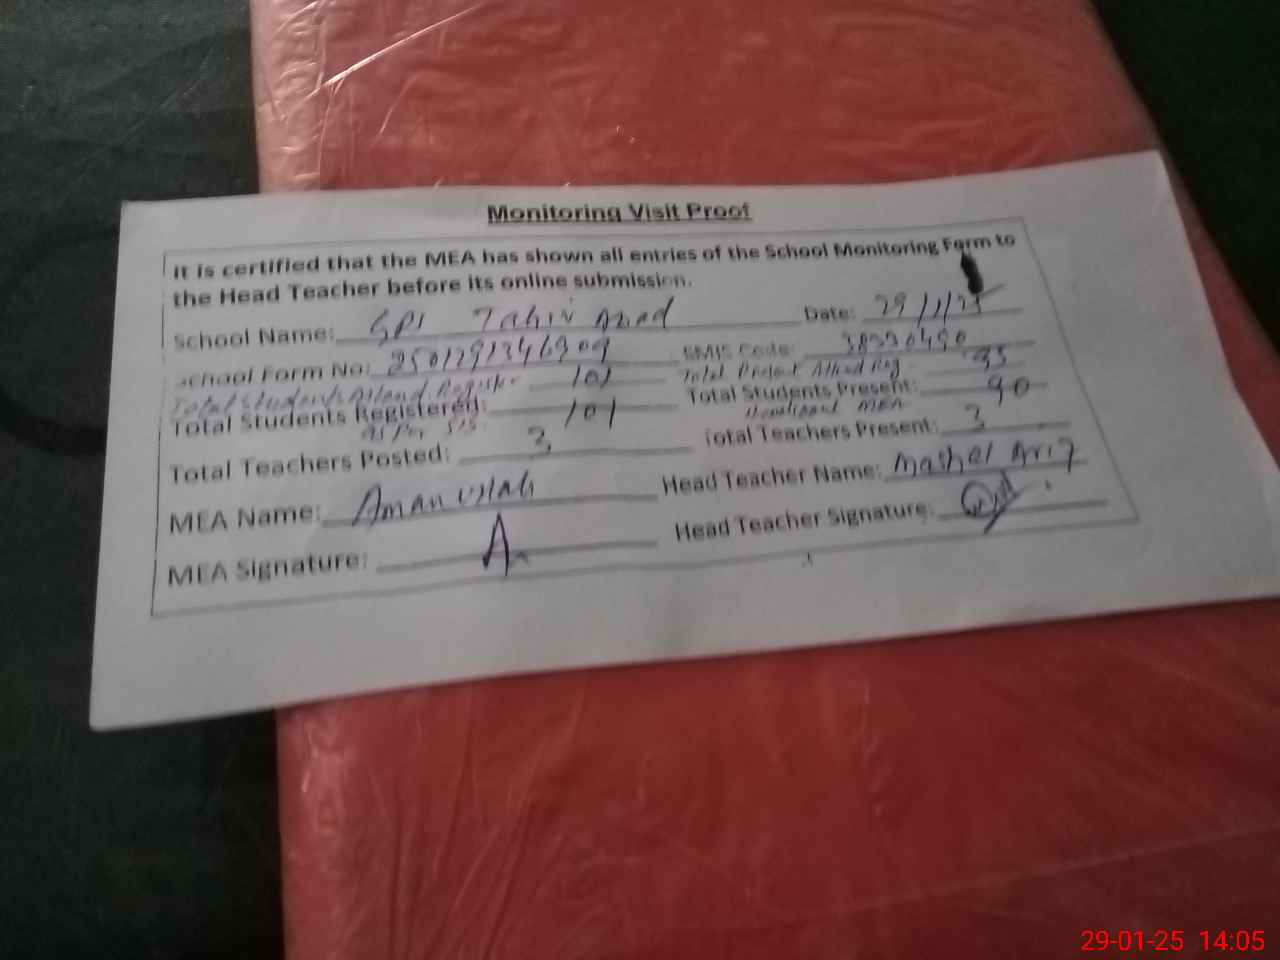 Monitoring Visit Proof
It is certified that the MEA has shown all entries of the School Monitoring Form to
the Head Teacher before its online submission.
School Name: GPS Tahir Abad Date: 29/1/25
School Form No: EMIS Code: 38330490
Total Students Attend. Register 101 Total Present Attend Reg. 95
Total Students Registered: 101 Total Students Present: 90
as per SIS Headcount MEA
Total Teachers Posted: 3 Total Teachers Present: 3
MEA Name: Aman ullah Head Teacher Name:
MEA Signature: Head Teacher Signature:
29-01-25 14:05